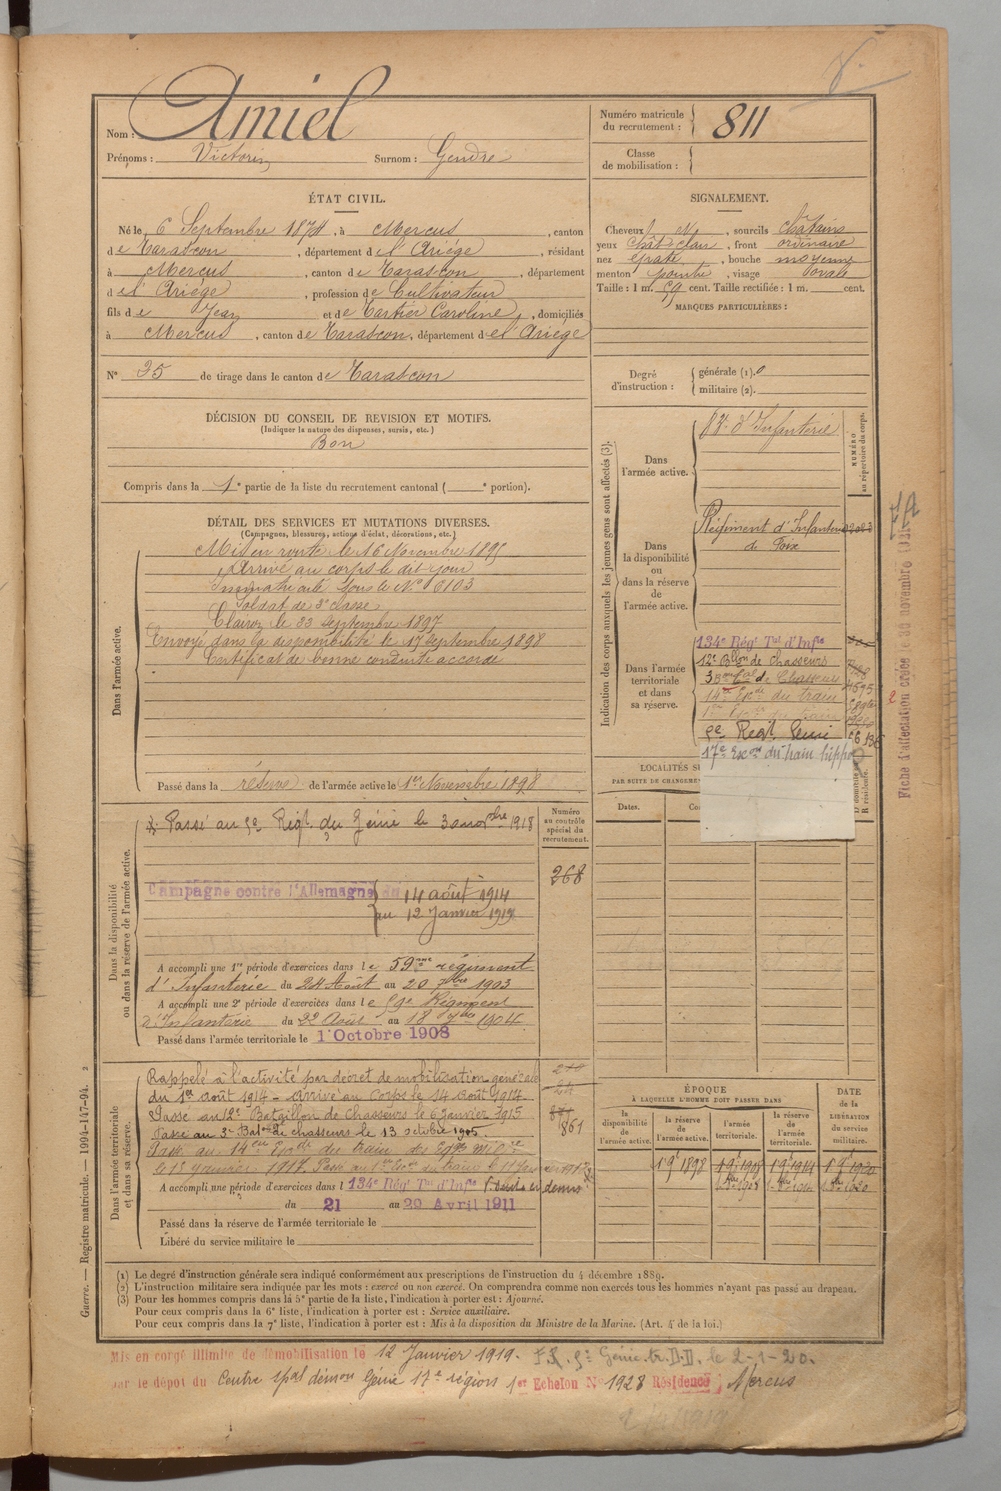 Nom : Amiel
Prénoms : Victorin Surnom : Gendré
Numéro matricule du recrutement : 811
Classe de mobilisation :
ÉTAT CIVIL.
Né le 6 Septembre 1874, à Mercus, canton
de Tarascon, département de l'Ariège, résidant
à Mercus, canton de Tarascon, département
de l'Ariège, profession de Cultivateur
fils de Jean et de Tartier Caroline, domiciliés
à Mercus, canton de Tarascon, département de l'Ariège
N° 25 de tirage dans le canton de Tarascon
SIGNALEMENT.
Cheveux N, sourcils châtains
yeux chât clair, front ordinaire
nez épaté, bouche moyenne
menton pointu, visage ovale
Taille : 1 m. 59 cent. Taille rectifiée : 1 m. cent.
MARQUES PARTICULIÈRES :
Degré d'instruction : générale (1). 0
militaire (2).
DÉCISION DU CONSEIL DE REVISION ET MOTIFS.
(Indiquer la nature des dispenses, sursis, etc.)
Bon
Compris dans la 1e partie de la liste du recrutement cantonal ( e portion).
DÉTAIL DES SERVICES ET MUTATIONS DIVERSES.
(Campagnes, blessures, actions d'éclat, décorations, etc.)
Dans l'armée active.
Mis en route le 16 Novembre 1895
Arrivé au corps le dit jour
immatriculé sous le N° 6103
Soldat de 2e classe
Clairon le 23 Septembre 1897
Envoyé dans la disponibilité le 17 septembre 1898
Certificat de bonne conduite accordé
Passé dans la réserve de l'armée active le 1er Novembre 1898
Indication des corps auxquels les jeunes gens sont affectés (3).
NUMÉRO au répertoire du corps.
Dans l'armée active. d'Infanterie
Dans la disponibilité ou dans la réserve de l'armée active.
Régiment d'Infanterie
de Foix
Dans l'armée territoriale et dans sa réserve.
134e Régt Tal d'Infie
12e Bllon de chasseurs
3 Bon Tal de Chasseurs 4595
14e Exon du train
5e Regt Génie
17e Exon du train hippo
LOCALITÉS
PAR SUITE DE CHANGEMENT
Dates.
D domicile
R résidence.
Dans la disponibilité ou dans la réserve de l'armée active.
Numéro au contrôle spécial du recrutement.
Passé au 5e Régt du Génie le 1918
268
Campagne contre l'Allemagne du 14 août 1914
au 12 Janvier 1919
A accompli une 1re période d'exercices dans le 59me régiment
d'Infanterie du 24 Août au 20 7bre 1903
A accompli une 2e période d'exercices dans le 59e Régiment
d'Infanterie du 22 Août au 18 7bre 1904
Passé dans l'armée territoriale le 1 Octobre 1908
Dans l'armée territoriale et dans sa réserve.
Rappelé à l'activité par décret de mobilisation générale
du 1er août 1914 – arrivé au Corps le 14 août 1914
Passé au 12e Bataillon de Chasseurs le 6 janvier 1915
861
Passé au 3e Baton de chasseurs le 13 octobre
A accompli une période d'exercices dans l 134e Régt Tal d'Infie
du 21 au 29 Avril 1911
Passé dans la réserve de l'armée territoriale le
Libéré du service militaire le
ÉPOQUE
À LAQUELLE L'HOMME DOIT PASSER DANS
la disponibilité de l'armée active.
la réserve de l'armée active.
l'armée territoriale.
la réserve de l'armée territoriale.
DATE de la LIBÉRATION du service militaire.
(1) Le degré d'instruction générale sera indiqué conformément aux prescriptions de l'instruction du 4 décembre 1889.
(2) L'instruction militaire sera indiquée par les mots : exercé ou non exercé. On comprendra comme non exercés tous les hommes n'ayant pas passé au drapeau.
(3) Pour les hommes compris dans la 5e partie de la liste, l'indication à porter est : Ajourné.
Pour ceux compris dans la 6e liste, l'indication à porter est : Service auxiliaire.
Pour ceux compris dans la 7e liste, l'indication à porter est : Mis à la disposition du Ministre de la Marine. (Art. 4 de la loi.)
Mis en congé illimité de démobilisation le 12 Janvier 1919. F.R. 5e Génie. tr. D.D. le 2-1-20.
par le dépôt du Centre spal démon Génie 17e région 1er Echelon N° 1928 Résidence Mercus
Guerre. — Registre matricule. — 1994-147-94. 2
Fiche d'affectation créée le 30 novembre